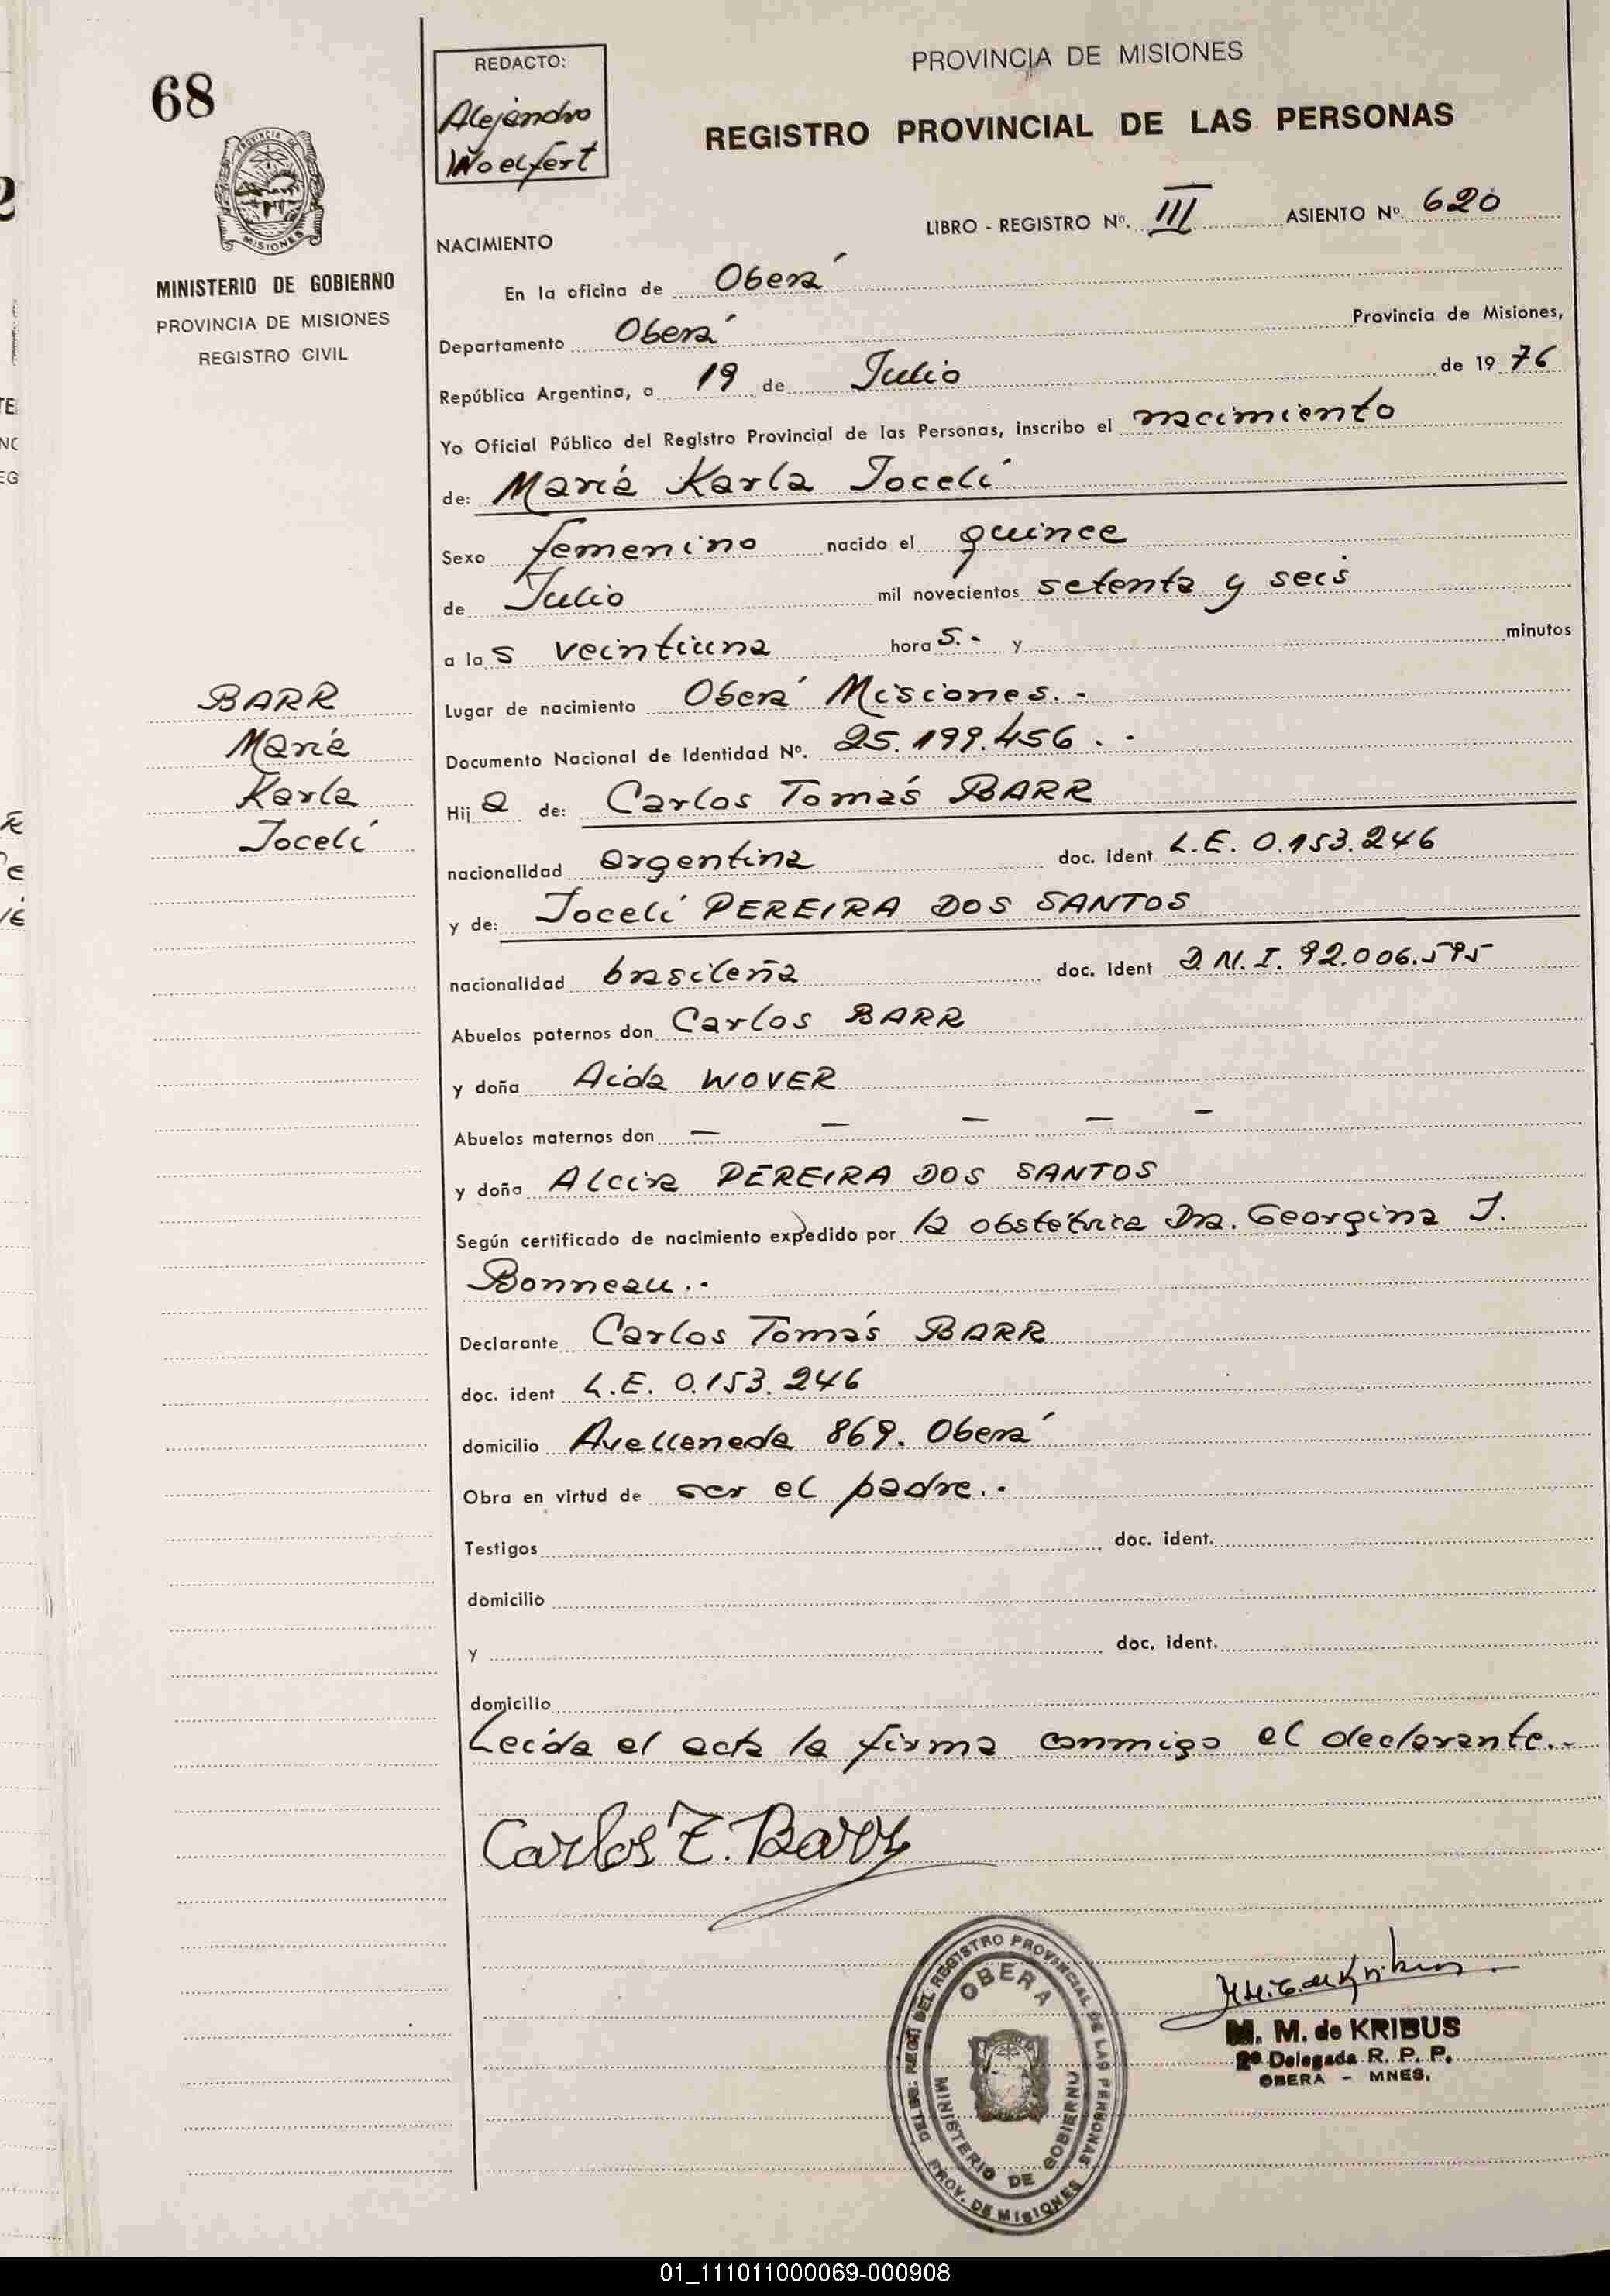 68
PROVINCIA DE
MISIONES
MINISTERIO DE GOBIERNO
PROVINCIA DE MISIONES
REGISTRO CIVIL
REDACTO:
Alejandro
Woelfert
PROVINCIA DE MISIONES
REGISTRO PROVINCIAL DE LAS PERSONAS
LIBRO - REGISTRO Nº. III ASIENTO Nº. 620
NACIMIENTO
En la oficina de Oberá
Departamento Oberá Provincia de Misiones,
República Argentina, a 19 de Julio de 19 76
Yo Oficial Público del Registro Provincial de las Personas, inscribo el nacimiento
de: María Karla Jocelí
Sexo femenino nacido el quince
de Julio mil novecientos setenta y seis
a las veintiuna horas.- y minutos
Lugar de nacimiento Oberá Misiones.-
Documento Nacional de Identidad Nº. 25.199.456.-
Hija de: Carlos Tomás BARR
nacionalidad argentina doc. Ident L.E. 0.153.246
y de: Jocelí PEREIRA DOS SANTOS
nacionalidad brasileña doc. Ident D.N.I. 92.006.595
Abuelos paternos don Carlos BARR
y doña Aida WOVER
Abuelos maternos don — — — — —
y doña Alcira PEREIRA DOS SANTOS
Según certificado de nacimiento expedido por la obstétrica Dra. Georgina J.
Bonneau.-
Declarante Carlos Tomás BARR
doc. ident L.E. 0.153.246
domicilio Avellaneda 869. Oberá
Obra en virtud de ser el padre.-
Testigos doc. ident.
domicilio
y doc. ident.
domicilio
Leída el acta la firma conmigo el declarante.-
BARR
María
Karla
Jocelí
Carlos T. Barr
DEL REGISTRO PROVINCIAL DE LAS PERSONAS
OBERA
MINISTERIO DE GOBIERNO
PROV. DE MISIONES
M. M. de KRIBUS
2ª Delegada R. P. P.
OBERA - MNES.
01_111011000069-000908